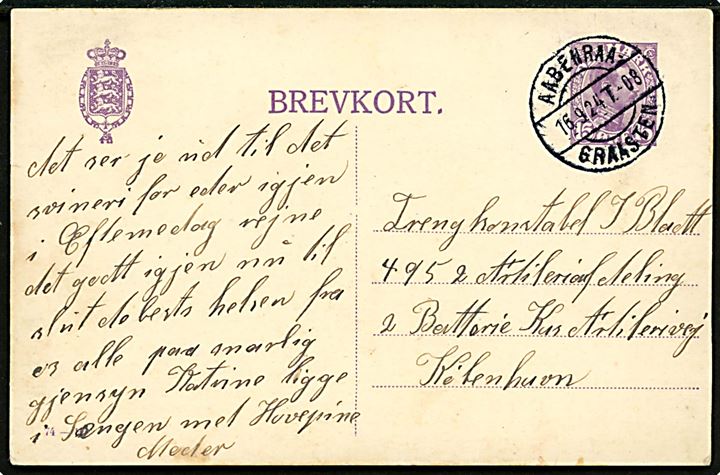 BREVKORT.
AABENRAA-
16.9.24 T.-08
GRAASTEN
det ser jo ud til det
svineri for eder igjen
i Eftemedag rejne
det godt igjen nu til
slut de bests helsen fra
os alle paa snarlig
gjensyn Katrine ligge
i Sengen met Hovepine
Moder
Trengkonstabel J Bladt
495 2 Artileriafdeling
2 Batterie Kas Artilerivej
København